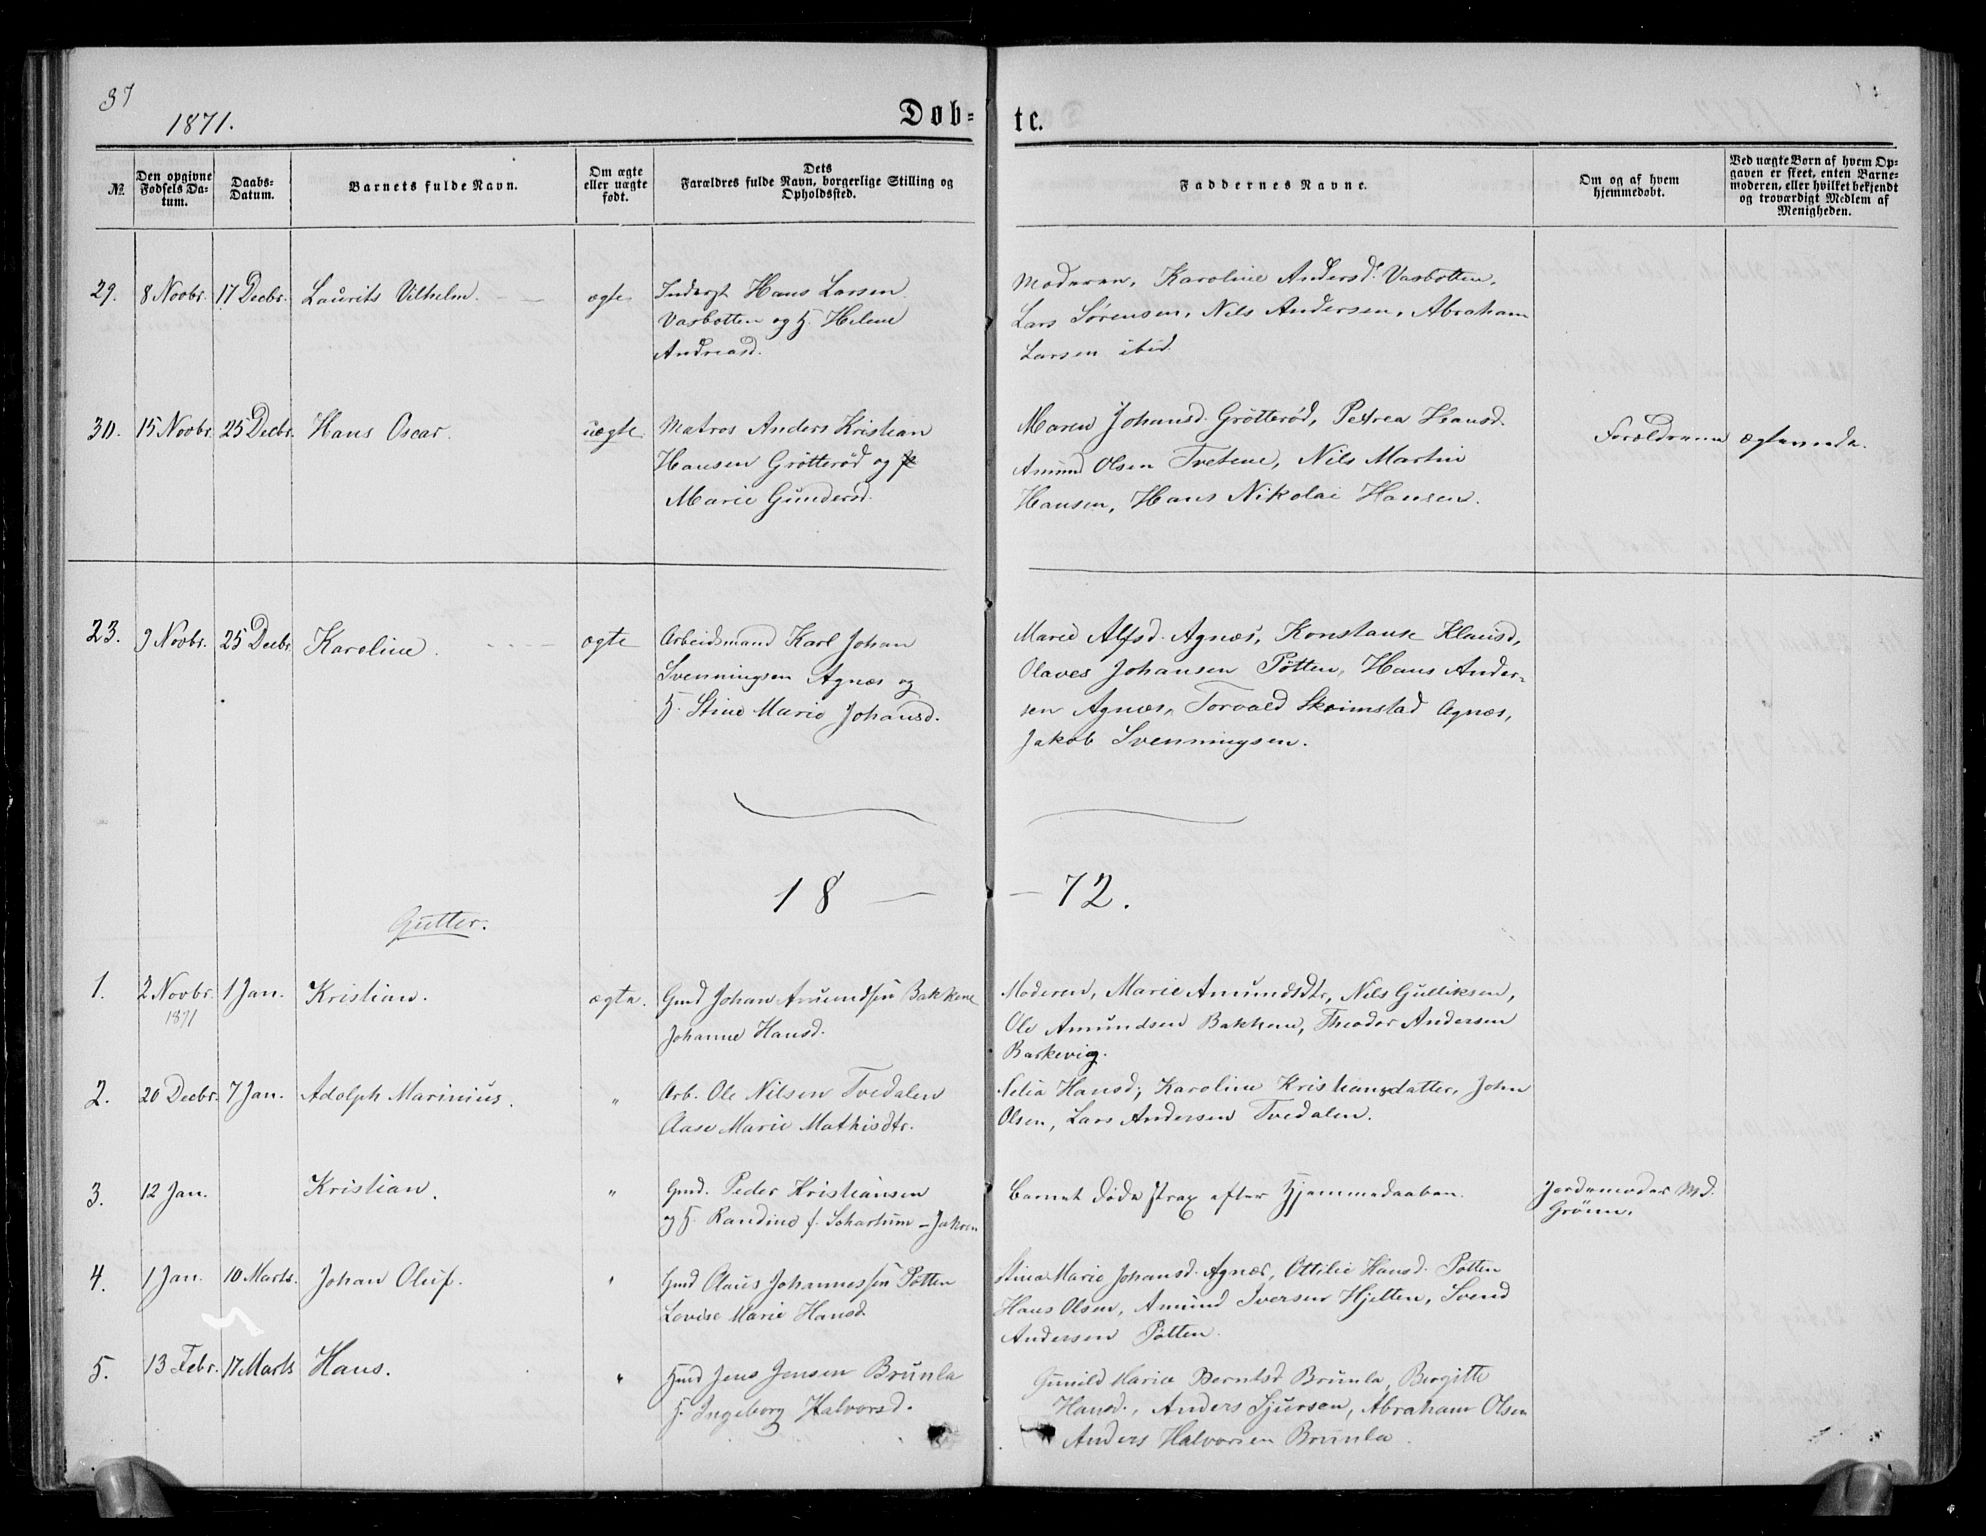 37
1871.
Døb-
te.
№
Den opgivne Fødsels Da-tum.
Daabs-Datum.
Barnets fulde Navn.
Om ægte eller uægte født.
Dets Forældres fulde Navn, borgerlige Stilling og Opholdssted.
Faddernes Navne.
Om og af hvem hjemmedøbt.
Ved uægte Børn af hvem Op-gaven er skeet, enten Barne-moderen, eller hvilket bekjendt og troværdigt Medlem af Menigheden.
29. 8 Novbr. 17 Decbr. Laurits Vilhelm. ægte Inderst Hans Larsen
Vasbotten og H. Helene
Andreasd.
Moderen, Karoline Andersd. Vasbotten,
Lars Sørensen, Nils Andersen, Abraham
Larsen ibid.
30. 15 Novbr. 25 Decbr. Hans Oscar. uægte Matros Anders Kristian
Hansen Grötterød og
Marie Gundersd.
Maren Johansd. Grötterød, Petrea Hansd.
Amund Olsen Tvetene, Nils Martin
Hansen, Hans Nikolai Hansen.
Forældrene ægteviede.
23. 9 Novbr. 25 Decbr. Karoline. ægte Arbeidsmand Karl Johan
Svenningsen Agnæs og
H. Stine Marie Johansd.
Maren Alfsd. Agnæs, Konstanse Klausd,
Olaves Johansen Pøtten, Hans Ander-
sen Agnæs, Torvald Skeimstad Agnæs,
Jakob Svenningsen.
18 — — 72.
Gutter.
1. 2 Novbr. 1871 1 Jan. Kristian. ægte. Gmd Johan Amundsen Bakkene
Johanne Hansd.
Moderen, Marie Amundsdtr, Nils Gulliksen,
Ole Amundsen Bakkene, Theodor Andersen
Barkevig.
2. 20 Decbr. 7 Jan. Adolph Marinius. " Arb. Ole Nilsen Tvedalen
Aase Marie Mathisdtr.
Selia Hansd; Karoline Kristiansdatter, John
Olsen, Lars Andersen Tvedalen.
3. 12 Jan. Kristian. " Gmd. Peder Kristiansen
og H. Randine f. Schartum - Jahren
Barnet døde strax efter Hjemmedaaben.
Jordemoder Md.
Grönn.
4. 1 Jan. 10 Marts. Johan Oluf. " Gmd Olaus Johannessen Pøtten
Lovise Marie Hansd
Stine Marie Johansd. Agnæs, Ottilie Hansd. Pøtten
Hans Olsen, Amund Iversen Hjelten, Svend
Andersen Pøtten.
5. 13 Febr. 17 Marts Hans. " Hmd Jens Jensen Brunla
H. Ingeborg Halvorsd.
Gunild Marie Berntsd Brunla, Bergitte
Hansd., Anders Sjursen, Abraham Olsen
Anders Halvorsen Brunla.